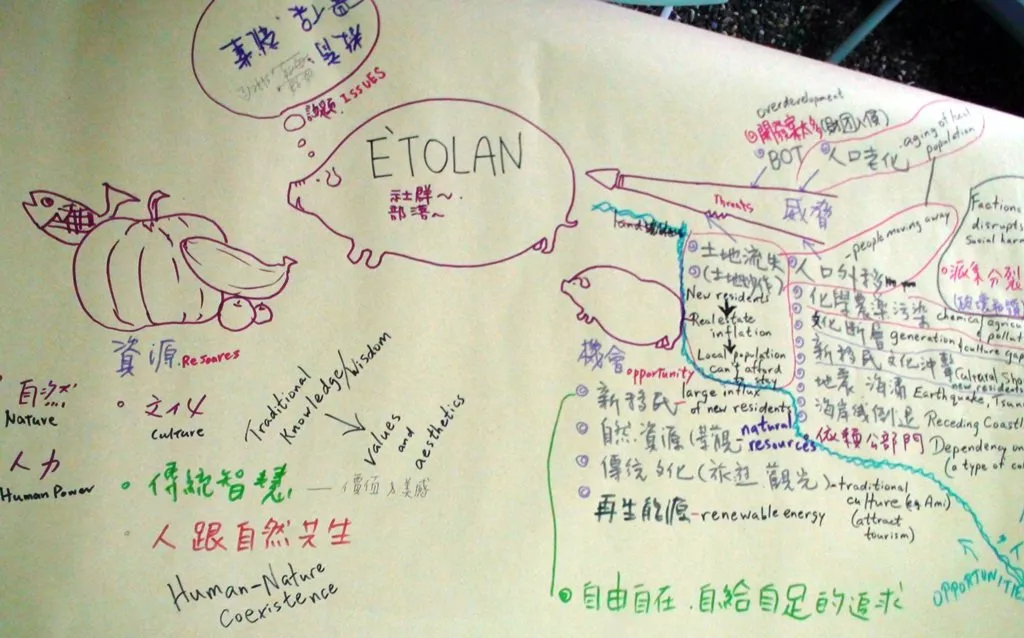 議題 ISSUES
ÈTOLAN
社群~
部落~
資源 Resoures
自然
Nature
人力
Human Power
文化
culture
傳統智慧 — 價值&美感
Traditional
Knowledge/Wisdom
values
and
aesthetics
人跟自然共生
Human-Nature
coexistence
overdevelopment
開發案太多(財团入侵)
BOT
人口老化 - aging of local
population
Threats
威脅
土地流失
New residents
Real estate
inflation
Local population
can't afford
to stay
人口外移
-people moving away
化學農藥污染 chemical
文化斷層 generation/culture gap
新移民文化沖擊 Cultural Sho
new residen
地震 海嘯 Earthquake, Tsun
海岸線倒退 Receding Coastl
依賴公部門 Dependency on
(a type of co
Factiona
disrupts
Social harm
派系分裂
機會
opportunity
新移民 - large influx
of new residents
自然資源(景觀 - natural
resources
傳統文化(旅遊 觀光) - traditional
culture (eg Ami)
(attract
tourism)
再生能源 - renewable energy
自由自在、自給自足的追求
OPPORTUNITIE